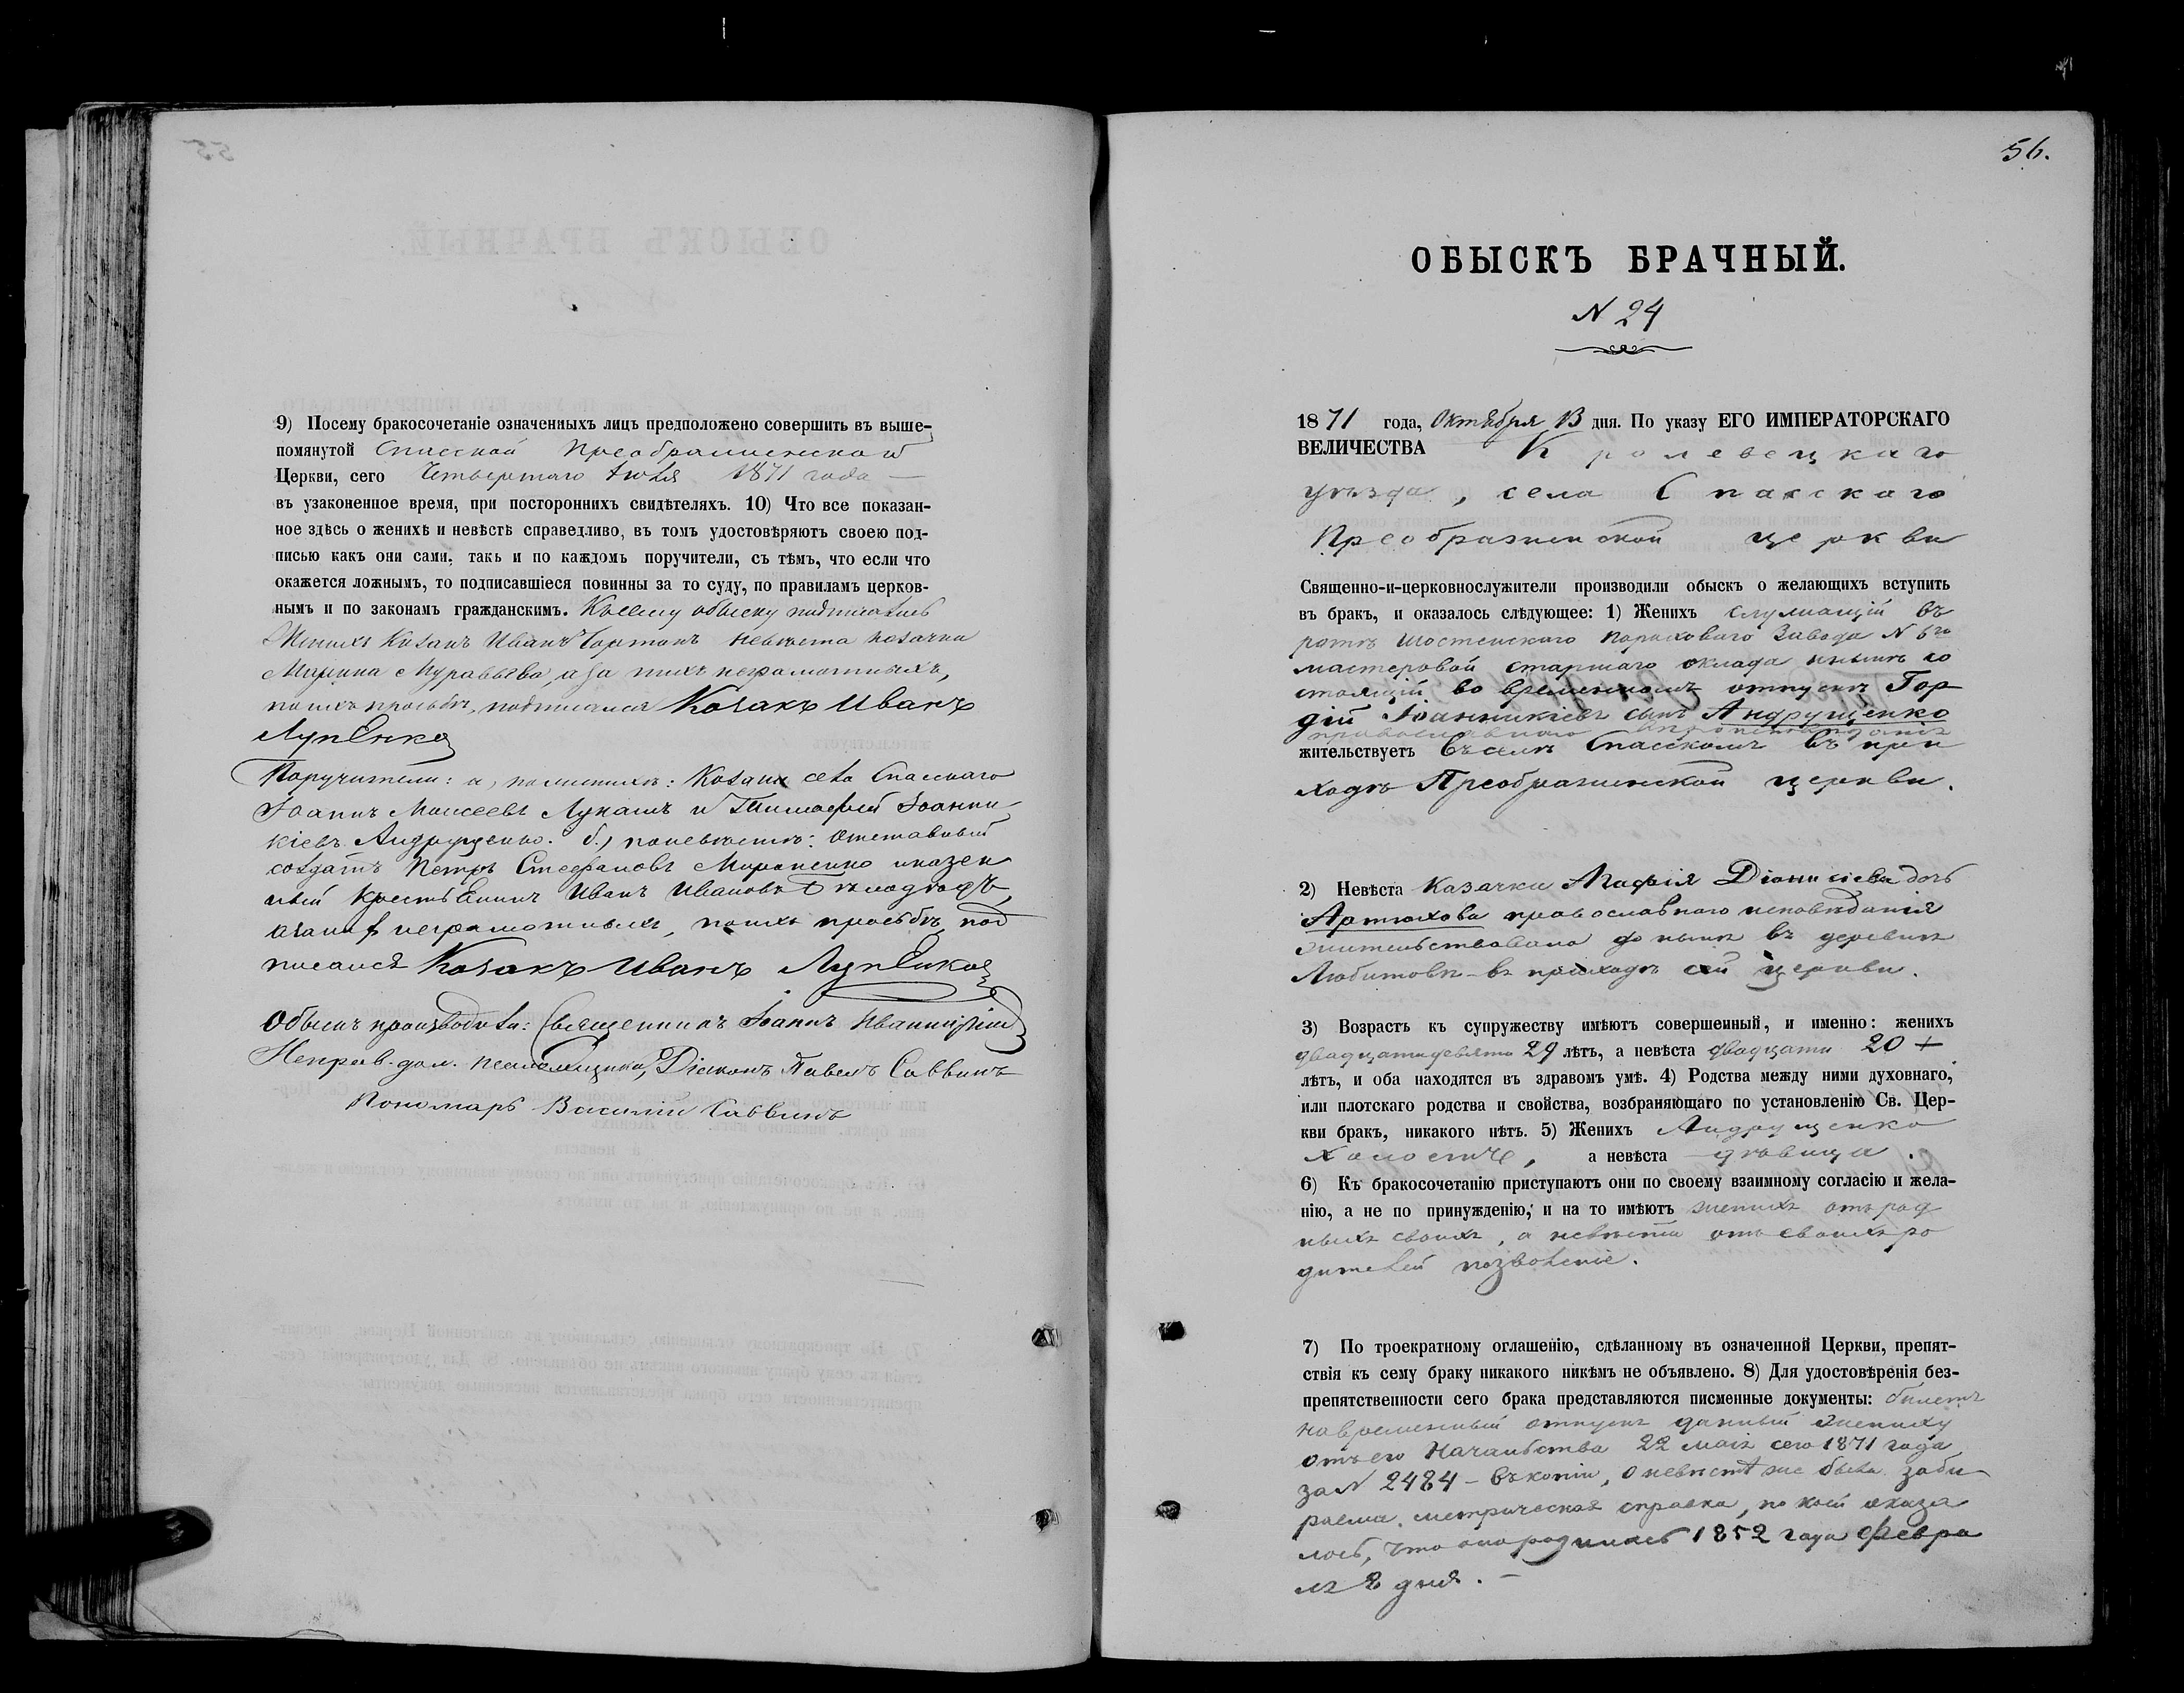 9) Посему бракосочетаніе означенныхъ лицъ предположено совершить въ выше-
помянутой Спасской Преображенской
Церкви, сего Четвертаго Іюля 1871 года —
въ узаконенное время, при постороннихъ свидѣтеляхъ. 10) Что все показан-
ное здѣсь о женихѣ и невѣстѣ справедливо, въ томъ удостовѣряютъ своею под-
писью какъ они сами, такъ и по каждомъ поручители, съ тѣмъ, что если что
окажется ложнымъ, то подписавшіеся повинны за то суду, по правиламъ церков-
нымъ и по законамъ гражданскимъ. Къ сему обыску подписались
Женихъ Козакъ Иванъ невѣста козачка
Марина Муравьева, а за нихъ неграмотныхъ,
по ихъ просьбѣ, подписался Козакъ Иванъ
Лупенко
Поручители: а, по женихѣ: Козаки села Спасскаго
Іоаннъ Моисеевъ Лукашъ и Тимофей Іоанни
кіевъ Андрущенко. б.) по невѣстѣ: отставный
солдатъ Петръ Стефановъ Мироненко и казен
ный крестьянинъ Иванъ Ивановъ
а за нихъ неграмотныхъ, по ихъ просьбѣ, под
писался Козакъ Иванъ Лупенко
Обыскъ производили: Священникъ Іоаннъ
Исправ. дол. псаломщика, Діаконъ Павелъ Саввинъ
Пономарь Василій Саввинъ
56.
ОБЫСКЪ БРАЧНЫЙ.
N 24
1871 года, Октября 13 дня. По указу ЕГО ИМПЕРАТОРСКАГО
ВЕЛИЧЕСТВА Кролевецкаго
уѣзда, села Спасскаго
Преображенской церкви
Священно-и-церковнослужители производили обыскъ о желающихъ вступить
въ бракъ, и оказалось слѣдующее: 1) Женихъ служащій въ
ротѣ Шостенскаго Пороховаго Завода N 6го
мастеровой старшаго оклада нынѣ со
стоящій во временномъ отпускѣ Гор
дій Іоанникіевъ сынъ Андрущенко
православнаго вѣроисповѣданія
жительствуетъ въ селѣ Спасскомъ въ при
ходѣ Преображенской церкви.
2) Невѣста Казачка Агафія Діонисіева дочь
Артюхова православнаго исповѣданія
жительствовала до нынѣ въ деревнѣ
Любитовкѣ – въ приходѣ сей церкви.
3) Возрастъ къ супружеству имѣютъ совершенный, и именно: женихъ
двадцатидевяти 29 лѣтъ, а невѣста двадцати 20 +
лѣтъ, и оба находятся въ здравомъ умѣ. 4) Родства между ними духовнаго,
или плотскаго родства и свойства, возбраняющаго по установленію Св. Цер-
кви бракъ, никакого нѣтъ. 5) Женихъ Андрущенко
холостъ, а невѣста дѣвица.
6) Къ бракосочетанію приступаютъ они по своему взаимному согласію и жела-
нію, а не по принужденію, и на то имѣютъ женихъ отъ род
ныхъ своихъ, а невѣста отъ своихъ ро
дителей позволеніе.
7) По троекратному оглашенію, сдѣланному въ означенной Церкви, препят-
ствія къ сему браку никакого никѣмъ не объявлено. 8) Для удостовѣренія без-
препятственности сего брака представляются писменные документы: билетъ
на временный отпускъ данный жениху
отъ его Начальства 22 маія сего 1871 года
за N 2484 – въ копіи, о невѣстѣ же была заби
раема метрическая справка, по коей оказа
лось, что она родилась 1852 года Февра
ля 2 дня. –